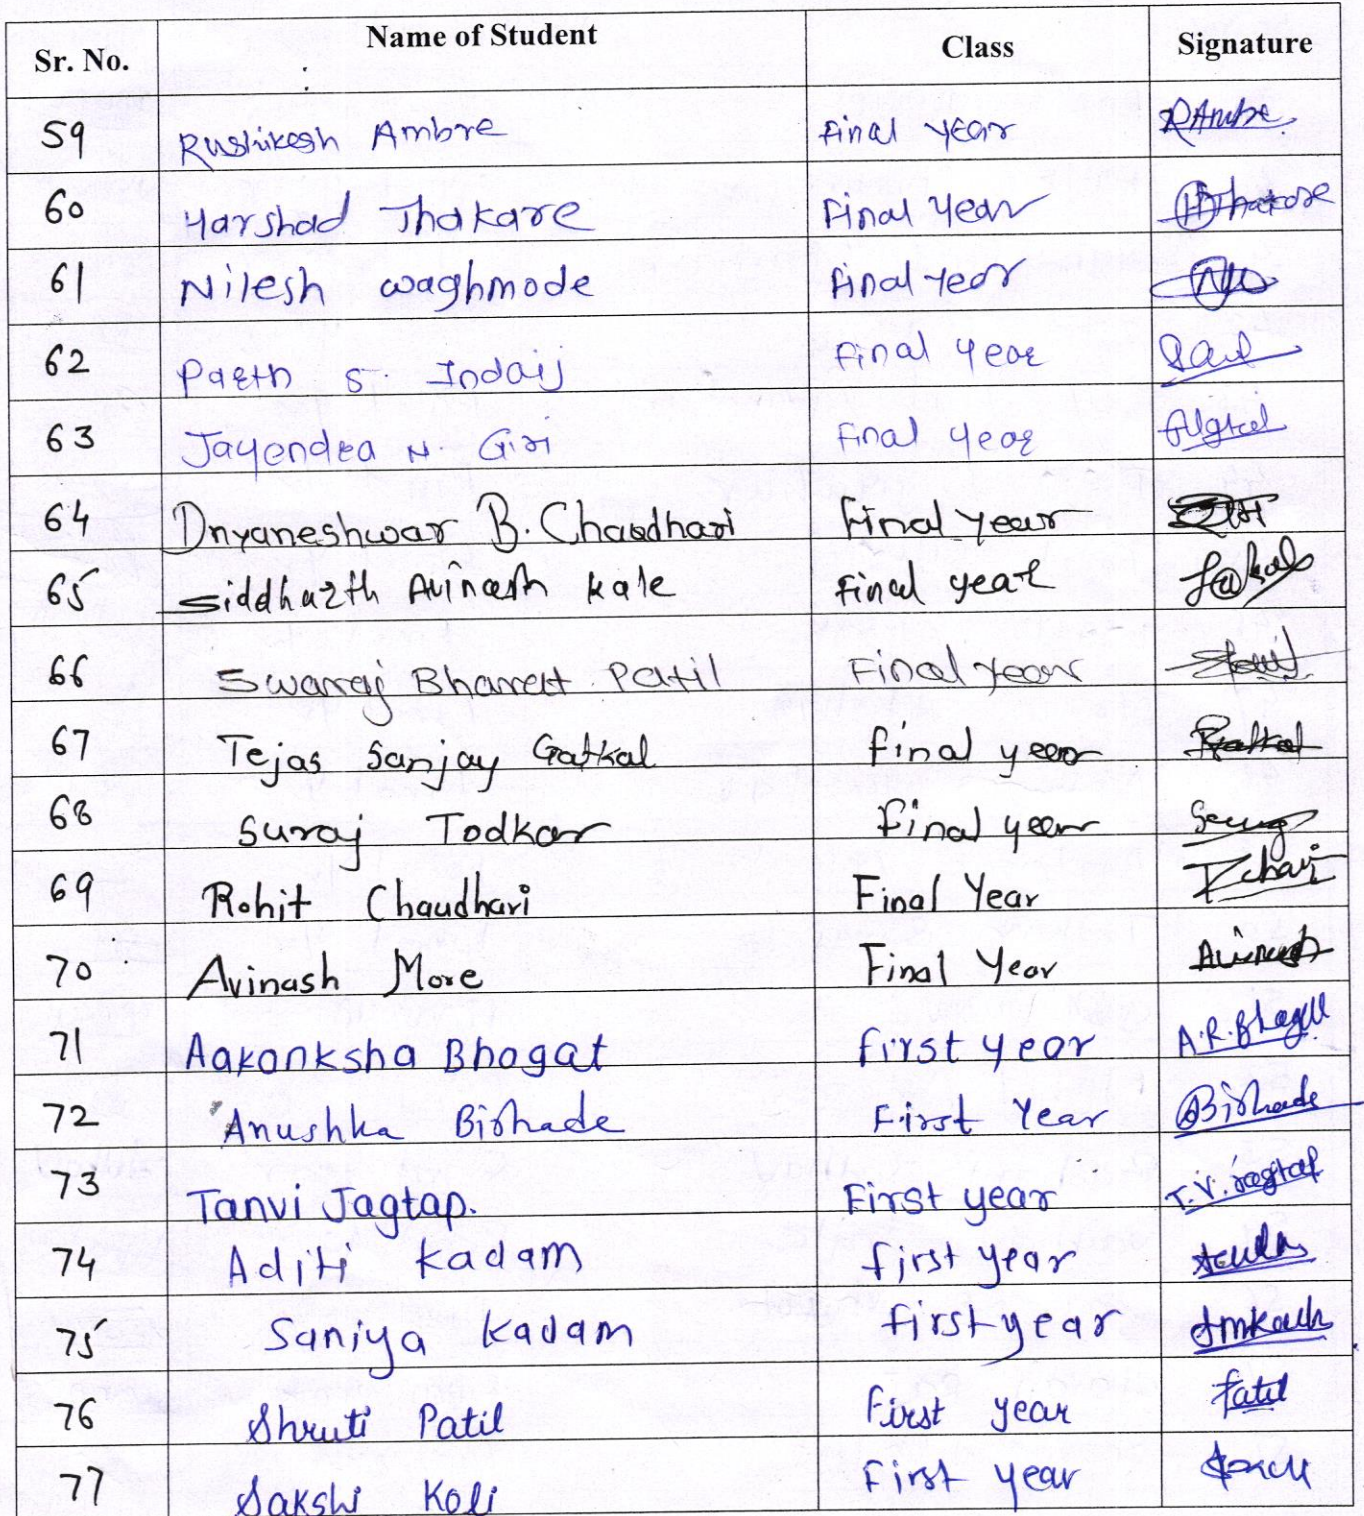 Sr. No. Name of Student Class Signature
59 Rushikesh Ambre Final Year RAmbre
60 Harshad Thakare Final Year
61 Nilesh Waghmode Final Year
62 Parth S. Indaij Final Year
63 Jayendra N. Giri Final Year
64 Dnyaneshwar B. Chaudhari Final Year
65 Siddharth Avinash Kale Final year
66 Swaraj Bharat Patil Final Year
67 Tejas Sanjay Gatkal Final year
68 Suraj Todkar Final year
69 Rohit Chaudhari Final Year
70 Avinash More Final Year Avinash
71 Aakanksha Bhogat First year A.R.Bhagat
72 Anushka Birhade First Year Birhade
73 Tanvi Jagtap. First year T.V.Jagtap
74 Aditi Kadam First year
75 Saniya Kadam First year
76 Shruti Patil First year Patil
77 Sakshi Koli First year